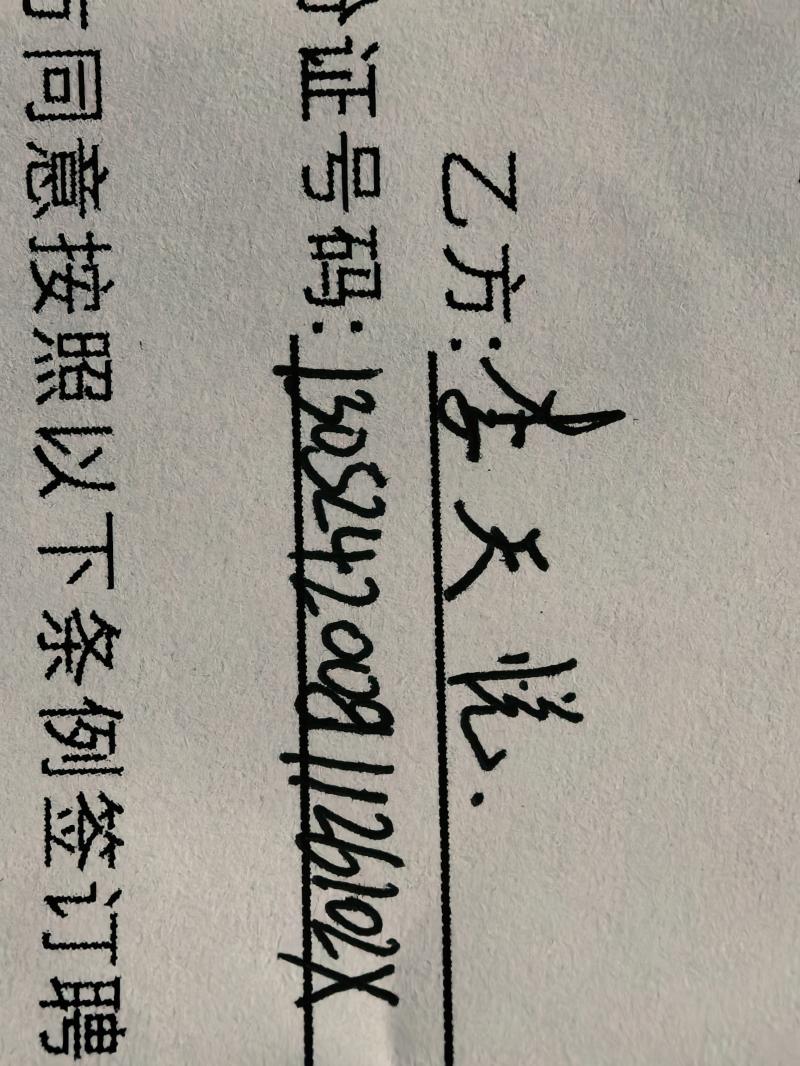 乙方:李天悦.
份证号码:13052420091126102X
方同意按照以下条例签订聘